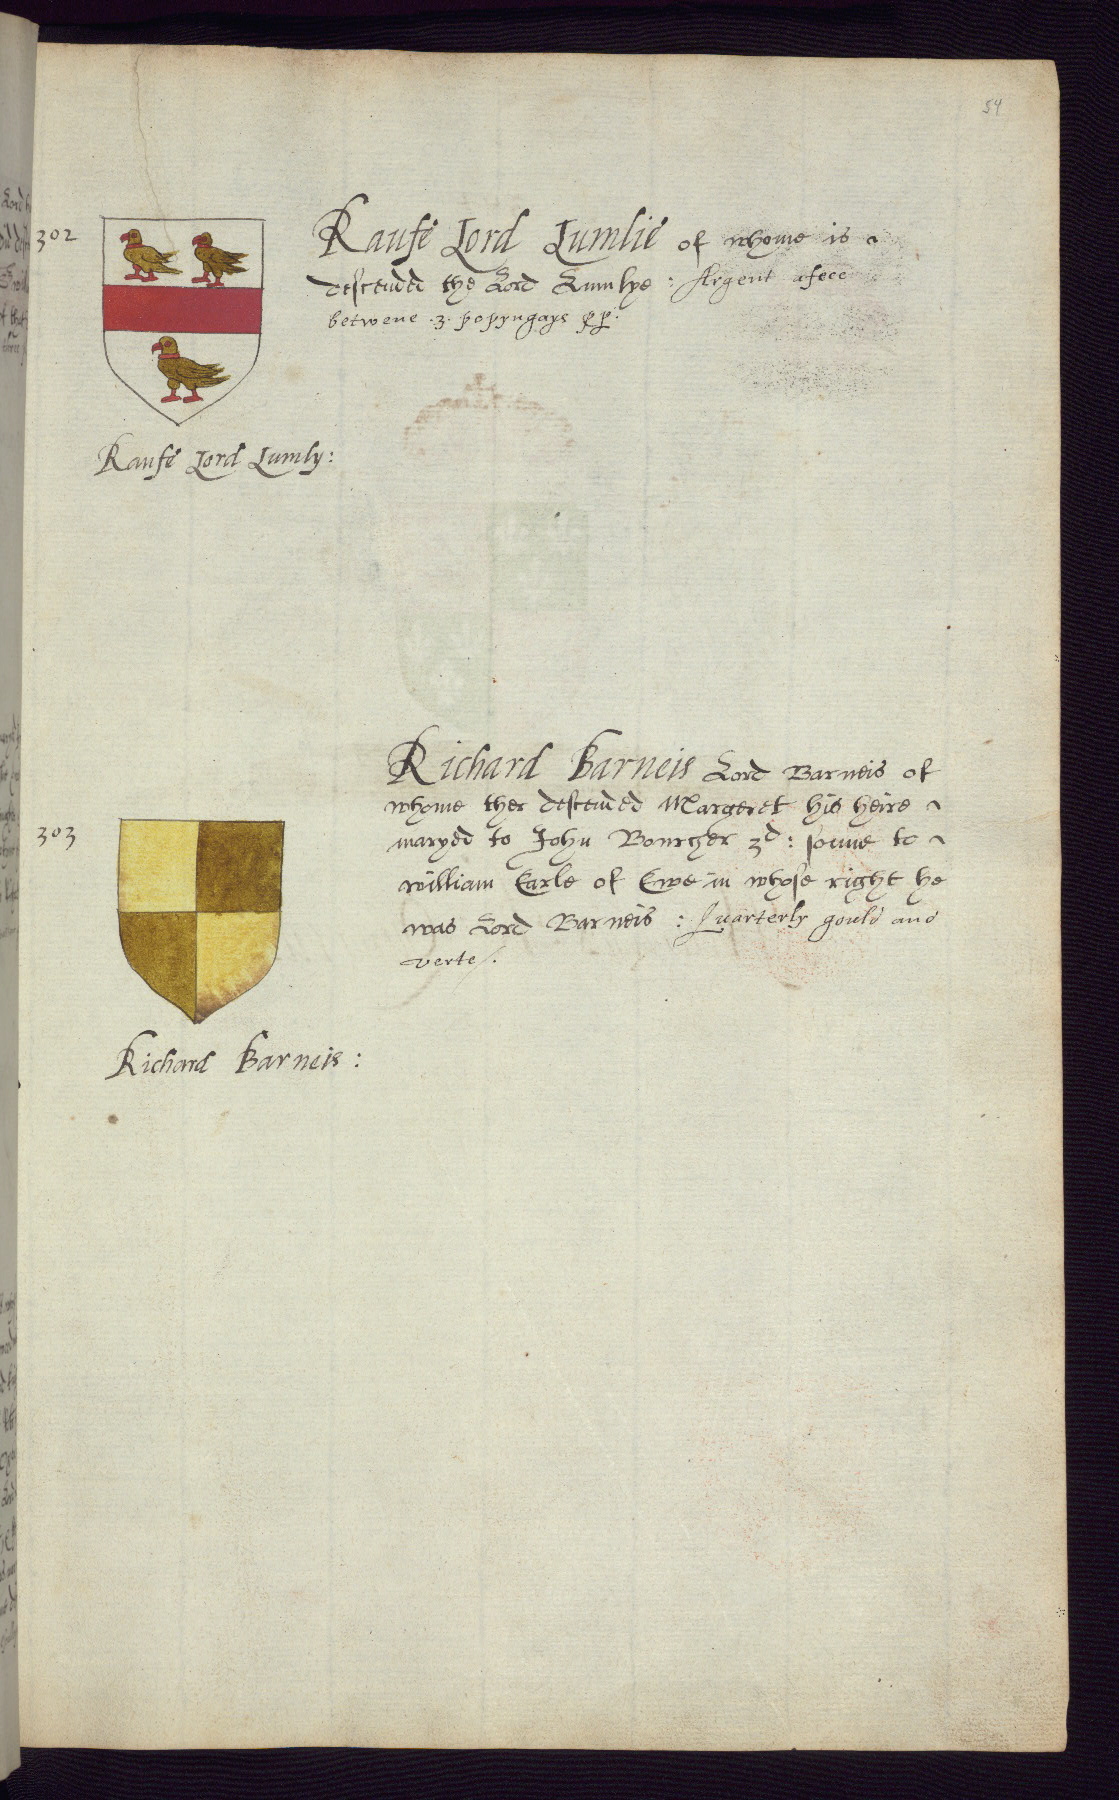 54
302
Raufe Lord Lumlie of whome is
descended the Lord Lumlye : Argent a fece
betwene .3. popyngays pp.
Raufe Lord Lumly :
303
Richard Barneis Lord Barneis of
whome ther descended Margeret his heire
maryed to John Bourcher 3d: sonne to
william Earle of Ewe in whose right he
was Lord Barneis : Quarterly gould and
verte/.
Richard Barneis :